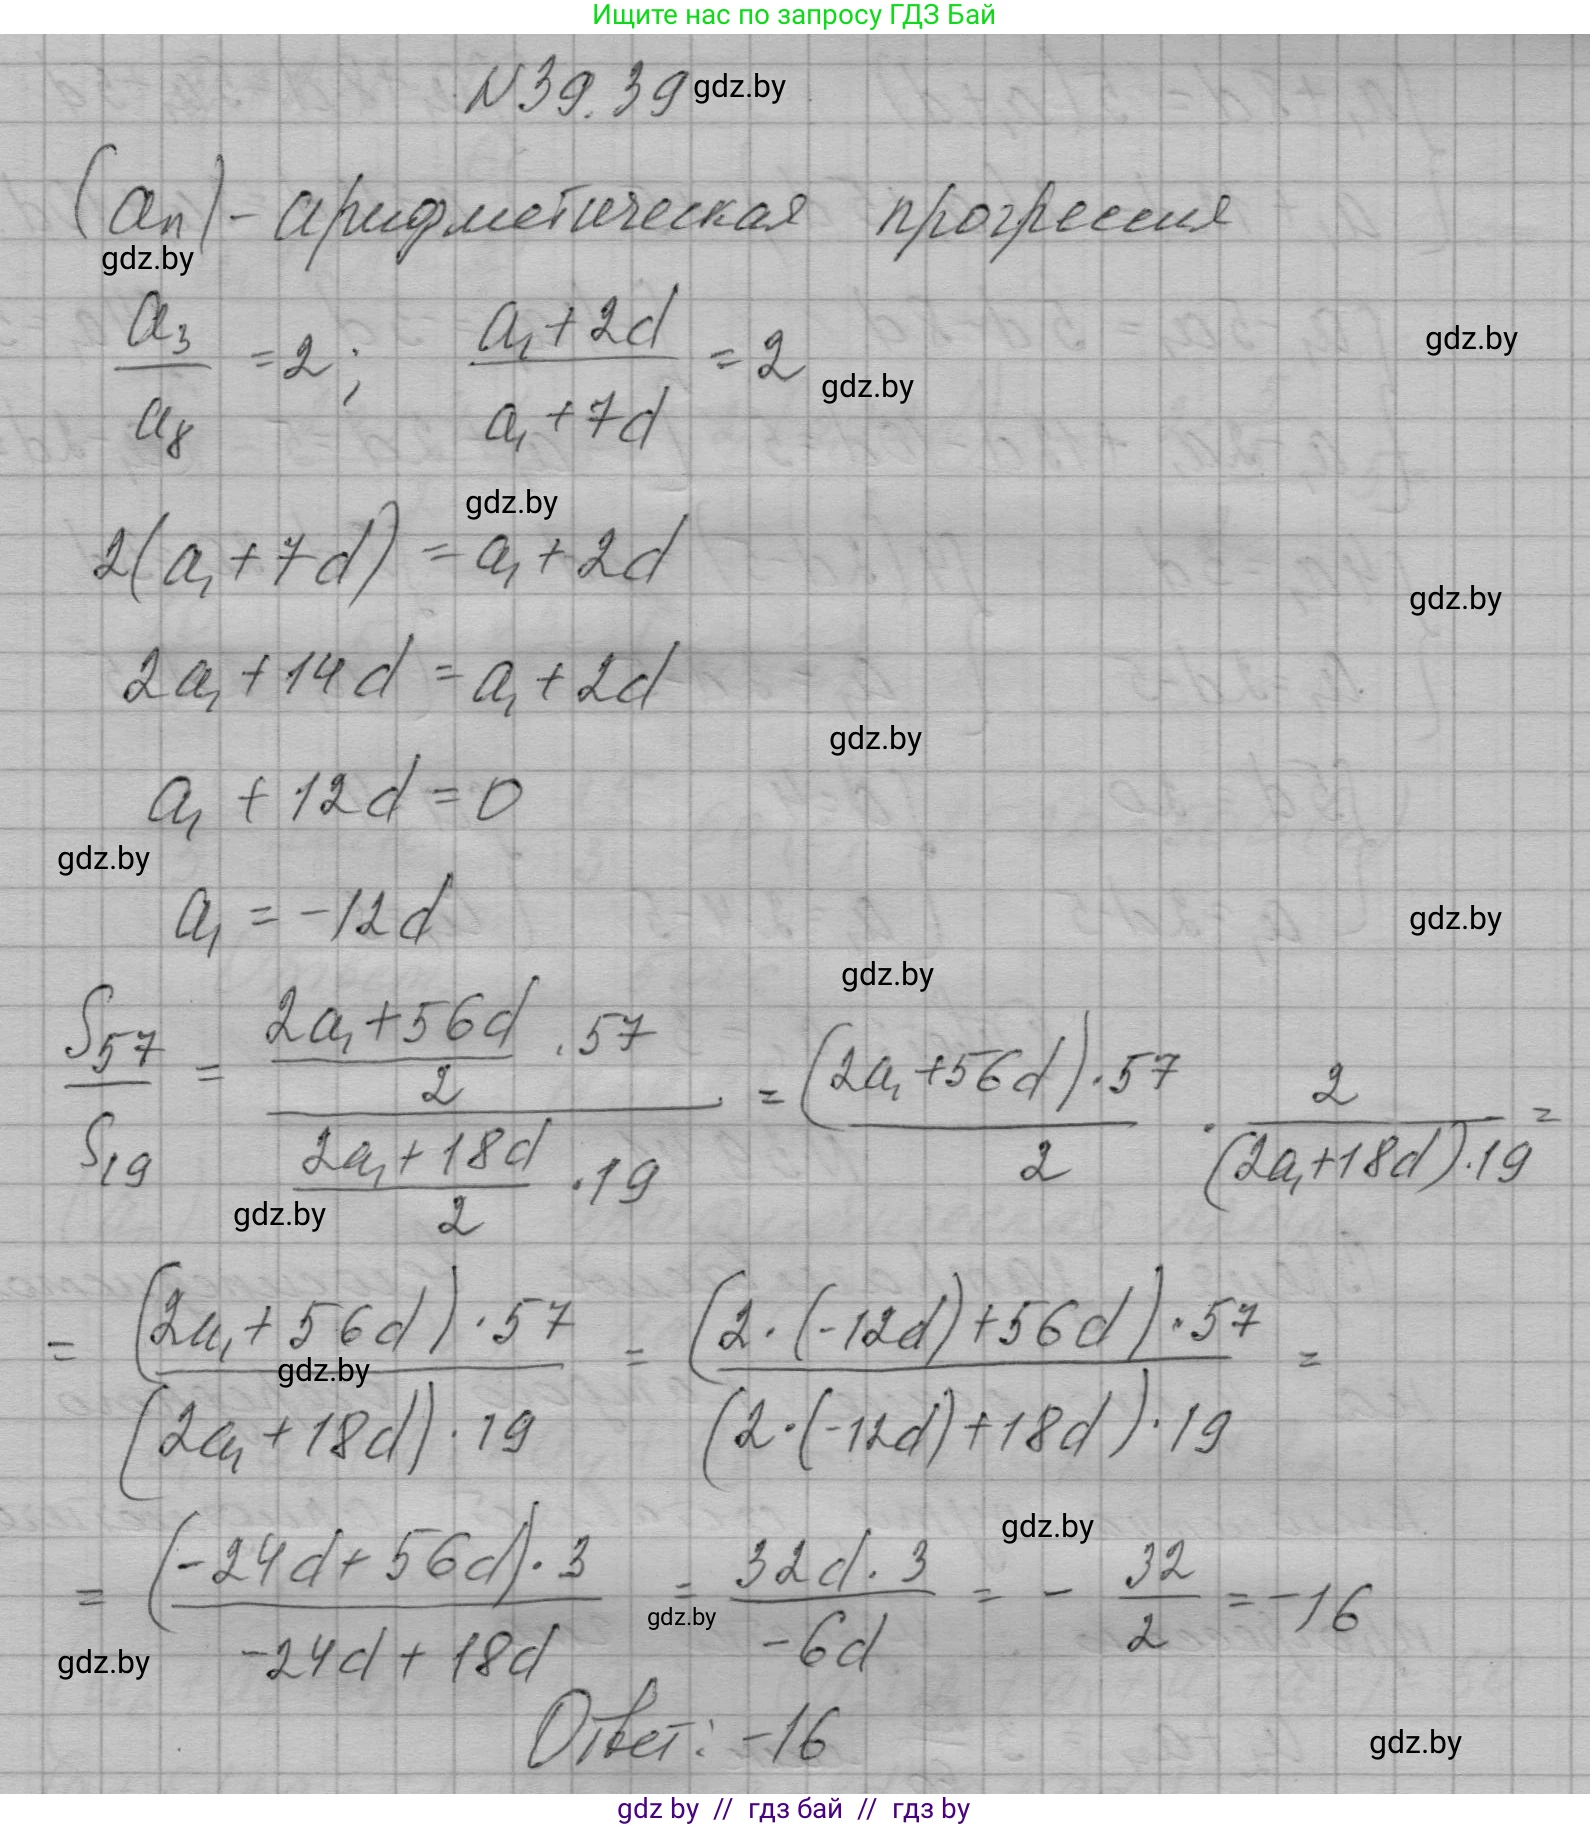 Ищите нас по запросу ГДЗ Бай
N39.39 gdz.by
(aₙ) - арифметическая прогрессия
gdz.by
a₃/a₈ = 2; (a₁+2d)/(a₁+7d) = 2
gdz.by
gdz.by
gdz.by
2(a₁+7d) = a₁+2d
gdz.by
2a₁+14d = a₁+2d
gdz.by
a₁+12d = 0
gdz.by
a₁ = -12d
gdz.by
gdz.by
S₅₇/S₁₉ = ((2a₁+56d)/2 · 57)/((2a₁+18d)/2 · 19) = (2a₁+56d)·57/2 · 2/((2a₁+18d)·19) =
gdz.by
= (2a₁+56d)·57/((2a₁+18d)·19) = (2·(-12d)+56d)·57/((2·(-12d)+18d)·19) =
gdz.by
gdz.by
= (-24d+56d)·3/(-24d+18d) = 32d·3/(-6d) = - 32/2 = -16
gdz.by
gdz.by
Ответ: -16
gdz.by
gdz by // гдз бай // гдз by